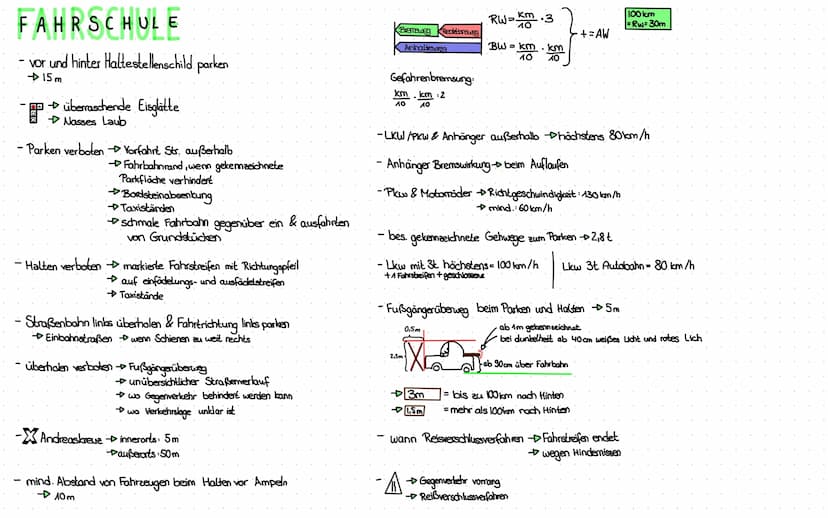 FAHRSCHULE
- vor und hinter Haltestellenschild parken
→ 15m
- → überraschende Eisglätte
→ Nasses Laub
- Parken verboten → Vorfahrt Str. außerhalb
→ Fahrbahnrand, wenn gekennzeichnete
Parkfläche verhindert
→ Bordsteinabsenkung
→ Taxiständen
→ schmale Fahrbahn gegenüber ein & ausfahrten
von Grundstücken
- Halten verboten → markierte Fahrstreifen mit Richtungspfeil
→ auf einfädelungs- und ausfädelstreifen
→ Taxistände
- Straßenbahn links überholen & Fahrtrichtung links parken
→ Einbahnstraßen → wenn Schienen zu weit rechts
- überholen verboten → Fußgängerüberweg
→ unübersichtlicher Straßenverlauf
→ wo Gegenverkehr behindert werden kann
→ wo Verkehrslage unklar ist
- Andreaskreuz → innerorts: 5m
→ außerorts: 50m
- mind. Abstand von Fahrzeugen beim Halten vor Ampeln
→ 10m
Bremsweg Reaktionsweg
Anhalteweg
RW = km/10 · 3
BW = km/10 · km/10
+ = AW
100km
= RW = 30m
Gefahrenbremsung:
km/10 · km/10 : 2
- LKW/PKW & Anhänger außerhalb → höchstens 80km/h
- Anhänger Bremswirkung → beim Auflaufen
- PKW & Motorräder → Richtgeschwindigkeit: 130km/h
→ mind.: 60km/h
- bes. gekennzeichnete Gehwege zum Parken → 2,8t
- LKW mit St. höchstens = 100km/h
+1 Fahrbstreifen + geschlossene
LKW 3t Autobahn = 80 km/h
- Fußgängerüberweg beim Parken und Halten → 5m
0,5m
2,5m
ab 1m gekennzeichnet
bei dunkelheit ab 40cm weißes Licht und rotes Lich
ab 90cm über Fahrbahn
→ 3m = bis zu 100km nach Hinten
→ 1,5m = mehr als 100km nach Hinten
- wann Reissverschlussverfahren → Fahrstreifen endet
→ wegen Hindernissen
- → Gegenverkehr vorrang
→ Reißverschlussverfahren